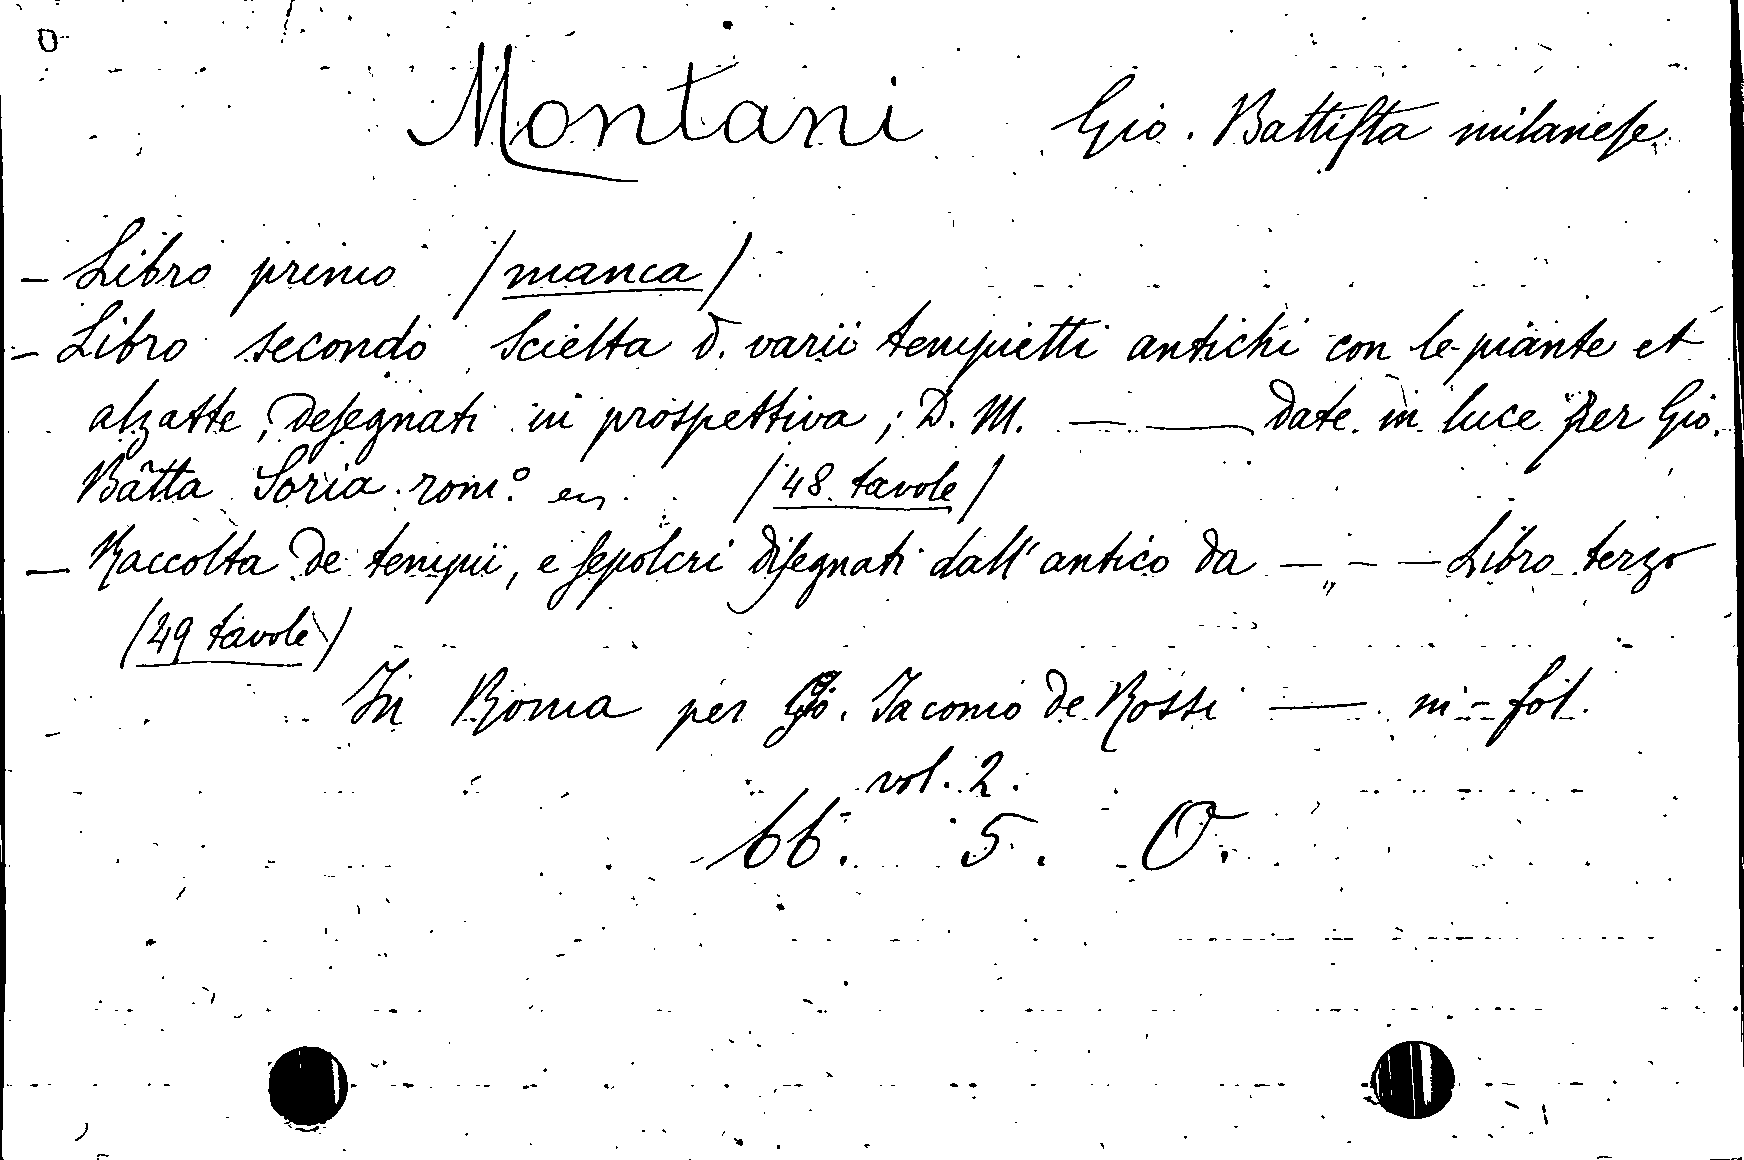 Montani Gio. Battiſta milaneſe
- Libro primo /manca/
- Libro secondo Scielta d. varii tempietti antichi con le piante et
alzatte, deſegnati in prospettiva; D. M. — — date in luce per Gio.
Bãtta Soria rom.º /48 tavole/
- Raccolta de tempii, e ſepolcri diſegnati dall'antico da — „ — — Libro terzo
/49 tavole/
In Roma per Gio. Iacomo de Rossi — in-fol.
vol. 2.
66. 5. O.